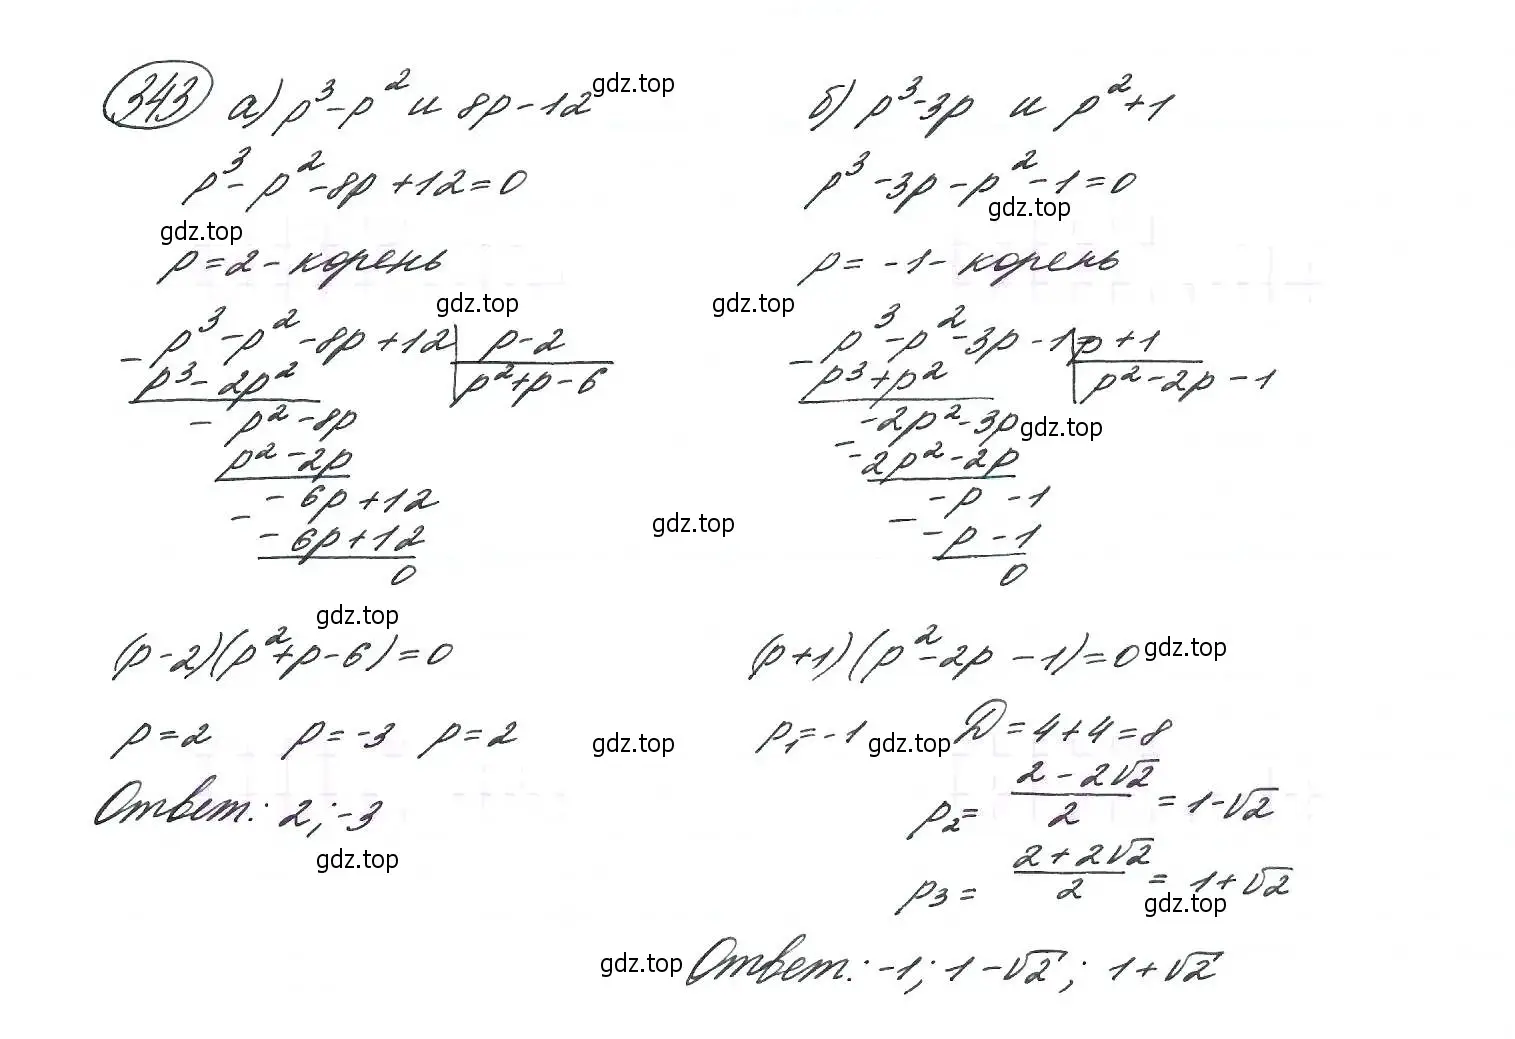 343 а) p³-p² и 8p-12 gdz.top
p³-p²-8p+12=0
gdz.top
p=2-корень
gdz.top
- p³-p²-8p+12 | p-2
p³-2p² | p²+p-6
- p²-8p
p²-2p
- -6p+12
-6p+12
0
gdz.top
gdz.top
(p-2)(p²+p-6)=0
p=2 p=-3 p=2
gdz.top
Ответ: 2; -3
gdz.top
б) p³-3p и p²+1
p³-3p-p²-1=0
gdz.top
p=-1-корень
gdz.top
- p³-p²-3p-1 | p+1
p³+p² | p²-2p-1
- -2p²-3p gdz.top
-2p²-2p
- -p-1
-p-1
0
(p+1)(p²-2p-1)=0 gdz.top
p₁=-1 gdz.top D=4+4=8
p₂= (2-2√2)/2 = 1-√2
p₃= (2+2√2)/2 = 1+√2
gdz.top
gdz.top Ответ: -1; 1-√2; 1+√2